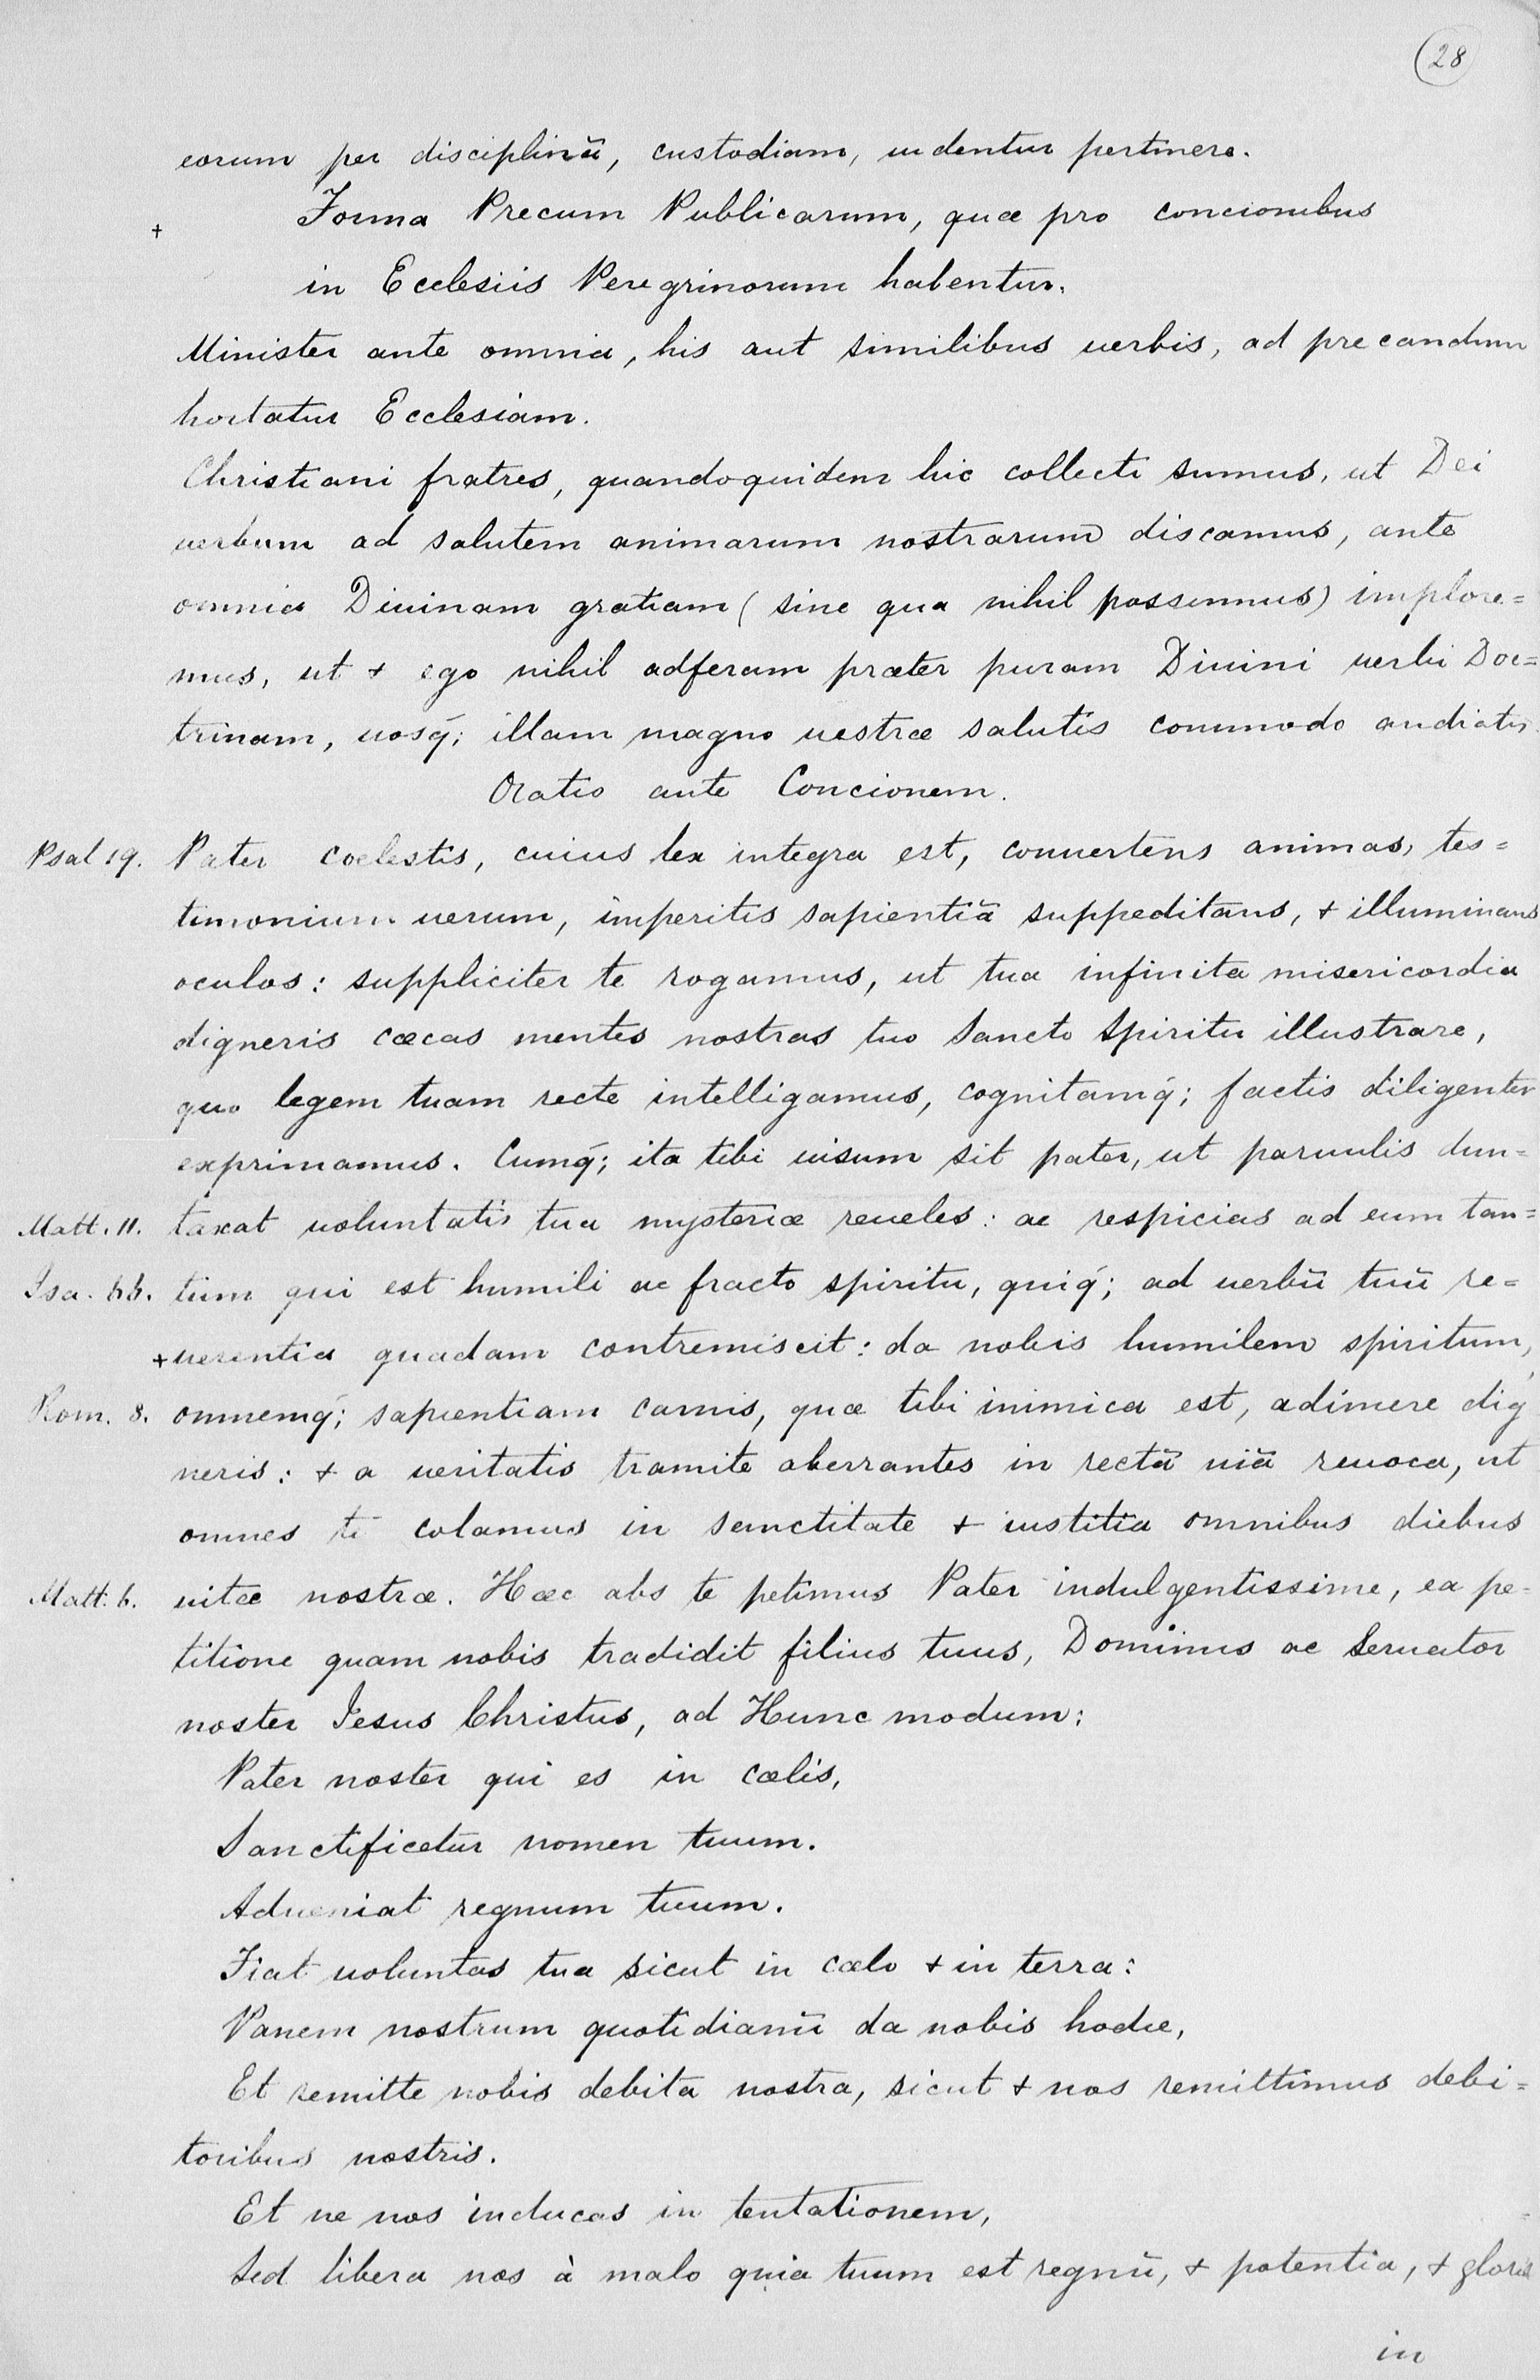 (28)
eorum per disciplinā, custodiam, uidentur pertinere.
+ Forma Precum Publicarum, quæ pro concionibus
in Ecclesiis Peregrinorum habentur.
Minister ante omnia, his aut similibus uerbis, ad precandum
hortatur Ecclesiam.
Christiani fratres, quandoquidem hic collecti sumus, ut Dei
uerbum ad salutem animarum nostrarum discamus, ante
omnia Diuinam gratiam (sine qua nihil possumus) implore=
mus, ut + ego nihil adferam præter puram Diuini uerbi Doc=
trinam, uosq́; illam magno uestræ salutis commodo audiatis.
Oratio ante Concionem.
Psal 19. Pater coelestis, cuius lex integra est, conuertens animas, tes=
timonium uerum, imperitis sapientiā suppeditans, + illuminans
oculos: suppliciter te rogamus, ut tua infinita misericordia
digneris cæcas mentes nostras tuo Sancto Spiritu illustrare,
quo legem tuam recte intelligamus, cognitamq́; factis diligenter
exprimamus. Cumq́; ita tibi uisum sit pater, ut paruulis dun=
Matt. 11. taxat uoluntatis tua mysteriæ reueles: ac respicias ad eum tan=
Isa. 66. tum qui est humili ac fracto spiritu, quiq́; ad uerbū tuū re=
+uerentia quadam contremiscit: da nobis humilem spiritum,
Rom. 8. omnemq́; sapientiam carnis, quæ tibi inimica est, adimere dig
neris: + a ueritatis tramite aberrantes in rectā uiā reuoca, ut
omnes te colamus in sanctitate + iustitia omnibus diebus
Matt. 6. uitæ nostræ. Hæc abs te petimus Pater indulgentissime, ea pe=
titione quam nobis tradidit filius tuus, Dominus ac Seruator
noster Jesus Christus, ad Hunc modum:
Pater noster qui es in cælis,
Sanctificetur nomen tuum.
Adueniat regnum tuum.
Fiat uoluntas tua sicut in cælo + in terra:
Panem nostrum quotidianū da nobis hodie,
Et remitte nobis debita nostra, sicut + nos remittimus debi=
toribus nostris.
Et ne nos inducas in tentationem,
Sed libera nos à malo quia tuum est regnū, + potentia, + gloria
in